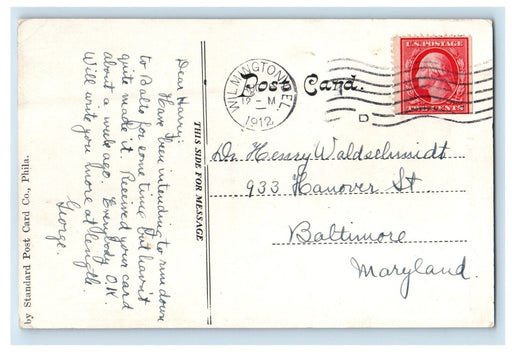 Dear Harry,
Have been intending to run down
to Balto for some time but havn't
quite made it. Received your card
about a week ago. Everybody O.K.
Will write you more at length.
George.
THIS SIDE FOR MESSAGE
by Standard Post Card Co., Phila.
Post Card.
WILMINGTON, DEL.
12 - M
1912
D
U.S. POSTAGE
CENTS
Dr. Henry Waldschmidt
933 Hanover St.
Baltimore
Maryland.